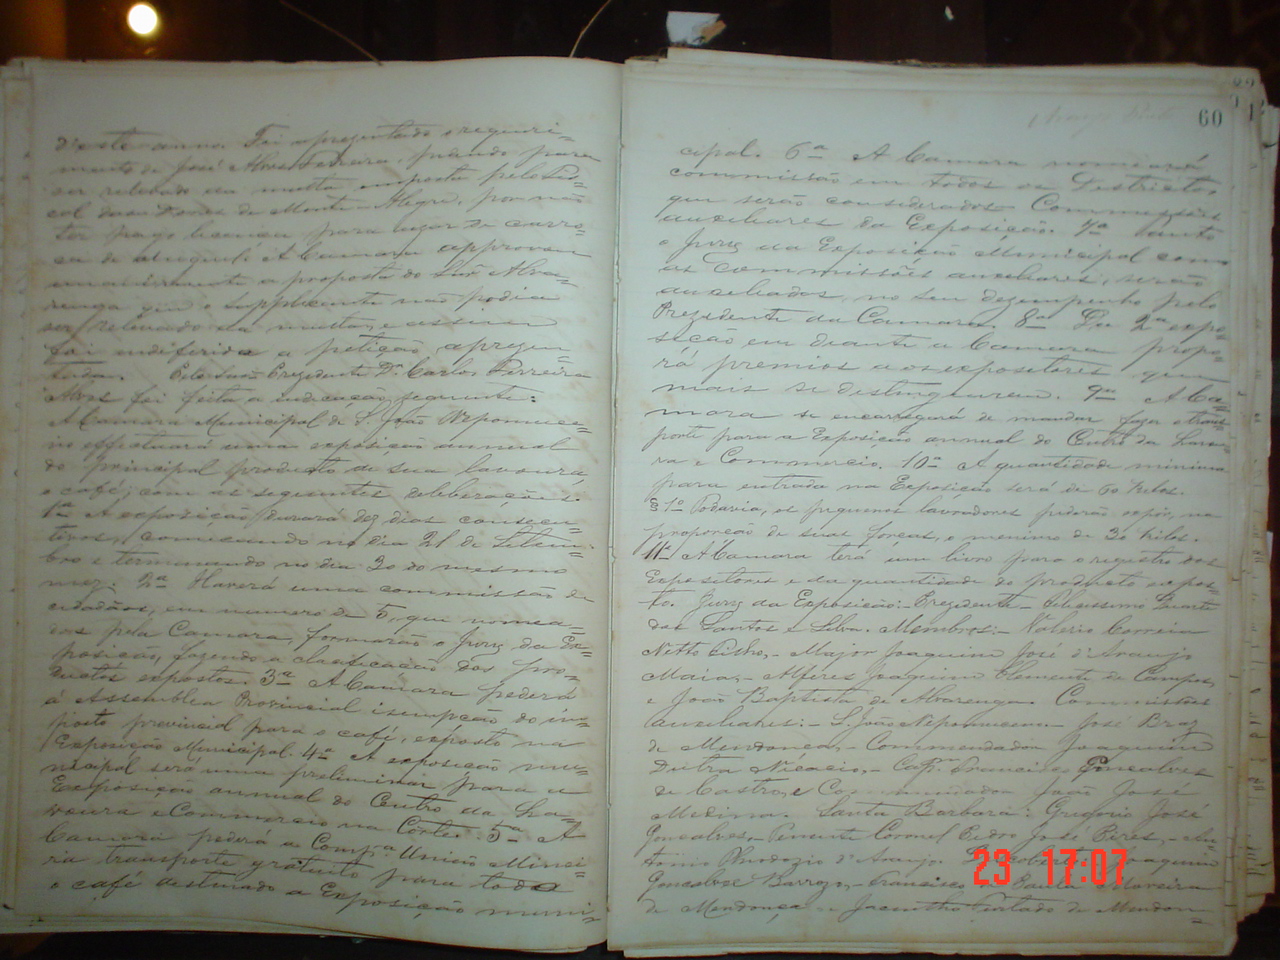 d'este anno. Foi apresentado o requeri=
mento de José Alves Ferreira, pedindo para
ser relevado da multa imposta pelo Fis=
cal das Dores de Monte Alegre, por não
ter pago licença para lugar de carro=
ça de aluguel. A Camara approvou
unanimemente a proposta do Snr. Alva=
renga que o supplicante não podia
ser relevado da multa, e assim
foi indiferida a petição apresen=
tada. Pelo Snr. Prezidente Dr. Carlos Ferreira
Alves foi feita a indicação seguinte:
A Camara Municipal de S. João Nepomuce=
no effectuará uma exposição annual
do principal producto de sua lavoura
o café, com as seguintes deliberações:
1ª A exposição durará dez dias consecu=
tivos, começando no dia 21 de Setem=
bro e terminando no dia 30 do mesmo
mez. 2ª Haverá uma commissão de
cidadãos, em numero de 5, que nomea=
dos pela Camara, formarão o Jury da Ex=
posição, fazendo a classificação dos pro=
ductos expostos. 3ª A Camara pederá
á Assemblea Provincial isempção do im=
posto provincial para o café, exposto na
Exposição Municipal. 4ª A exposição mu=
nicipal será uma preliminar para a
Exposição annual do Centro da La=
voura e Commercio na Côrte. 5ª A
Camara pederá a Comp.ª União Minei=
ra transporte gratuito para todo
o café destinado a Exposição muni=
60
cipal. 6ª A Camara nomeará
commissão em todos os Districtos,
que serão considerados Commissões
auxiliares da Exposição. 7ª Tanto
o Jury da Exposição Municipal como
as commissões auxiliares, serão
auxiliados, no seu dezempenho pelo
Prezidente da Camara. 8ª Da 2ª expo=
sição em diante a Camara propo=
rá premios a os expositores, que
mais se destinguirem. 9ª A Ca=
mara se encarregará de mandar fazer o trans=
porte para a Exposição annual do Centro da Lavou=
ra e Commercio. 10ª A quantidade minima
para entrada na Exposição será de 60 kilos.
§ 1º Todavia, os pequenos lavradores poderão expôr, na
proporção de suas forças, o menimo de 30 kilos.
11ª A Camara terá um livro para o registro dos
Expositores e da quantidade do producto expos=
to. Jury da Exposição:- Prezidente - Felicissimo Duarte
dos Santos e Silva. Membros:- Valerio Correia
Netto Filho, - Major Joaquim José d'Araujo
Maia, - Alferes Joaquim Clemente de Campos,
e João Baptista de Alvarenga. Commissões
auxiliares:- S. João Nepomuceno - José Braz
de Mendonça, - Commendador Joaquim
Dutra Nicacio, - Cap. Francisco Gonçalves
de Castro, e Commendador João José
Medina. Santa Barbara: Gregorio José
Gonçalves, - Tenente Coronel Pedro José Pires, - An=
tonio d'Araujo. Joaquim
Gonçalves Barrozo, - Francisco Paula Moreira
de Mendonça e Jacintho Furtado de Mendon=
23 17:07